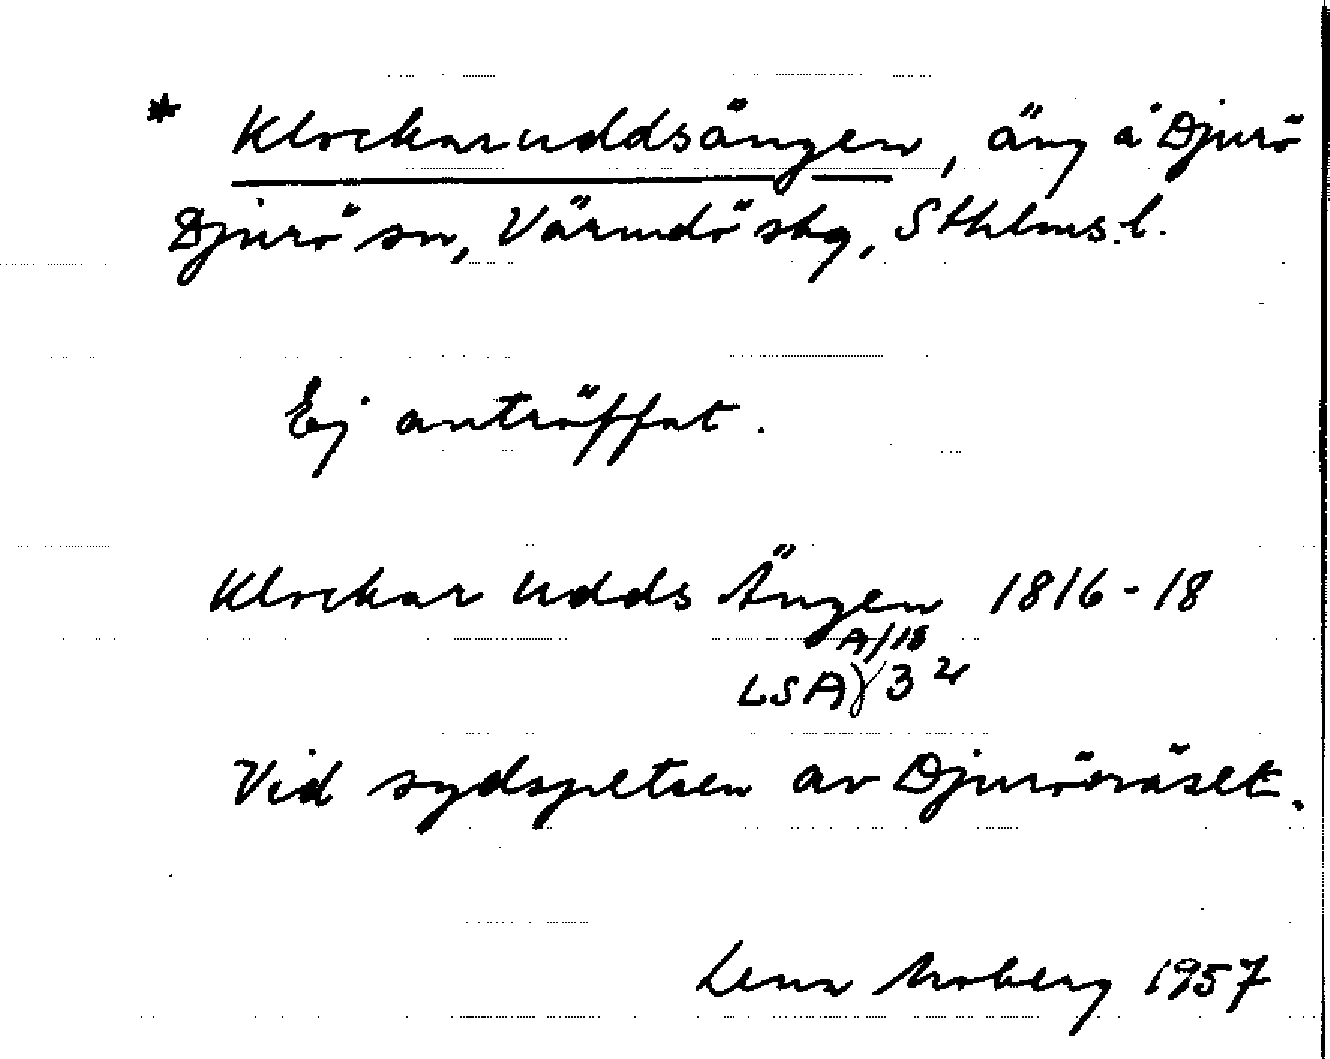 * Klockaruddsängen, äng å Djurö
Djurö sn, Värmdö skg, Sthlms. l.
Ej anträffat.
Klockar udds Ängen 1816-18
A/18
LSA 3
Vid sydspetsen av Djurönäset.
Lena Moberg 1957